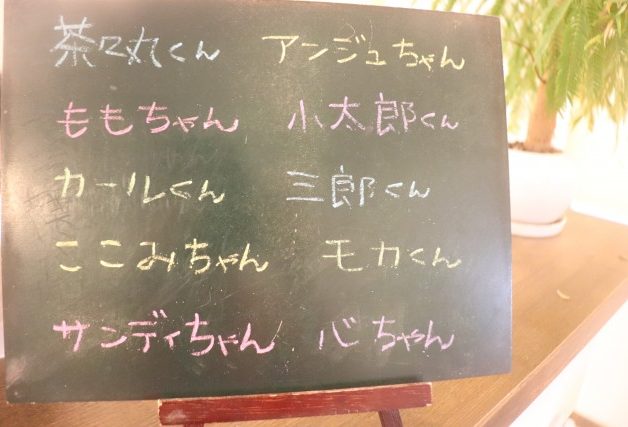 茶々丸くん アンジュちゃん
ももちゃん 小太郎くん
カールくん 三郎くん
ここみちゃん モカくん
サンディちゃん 心ちゃん